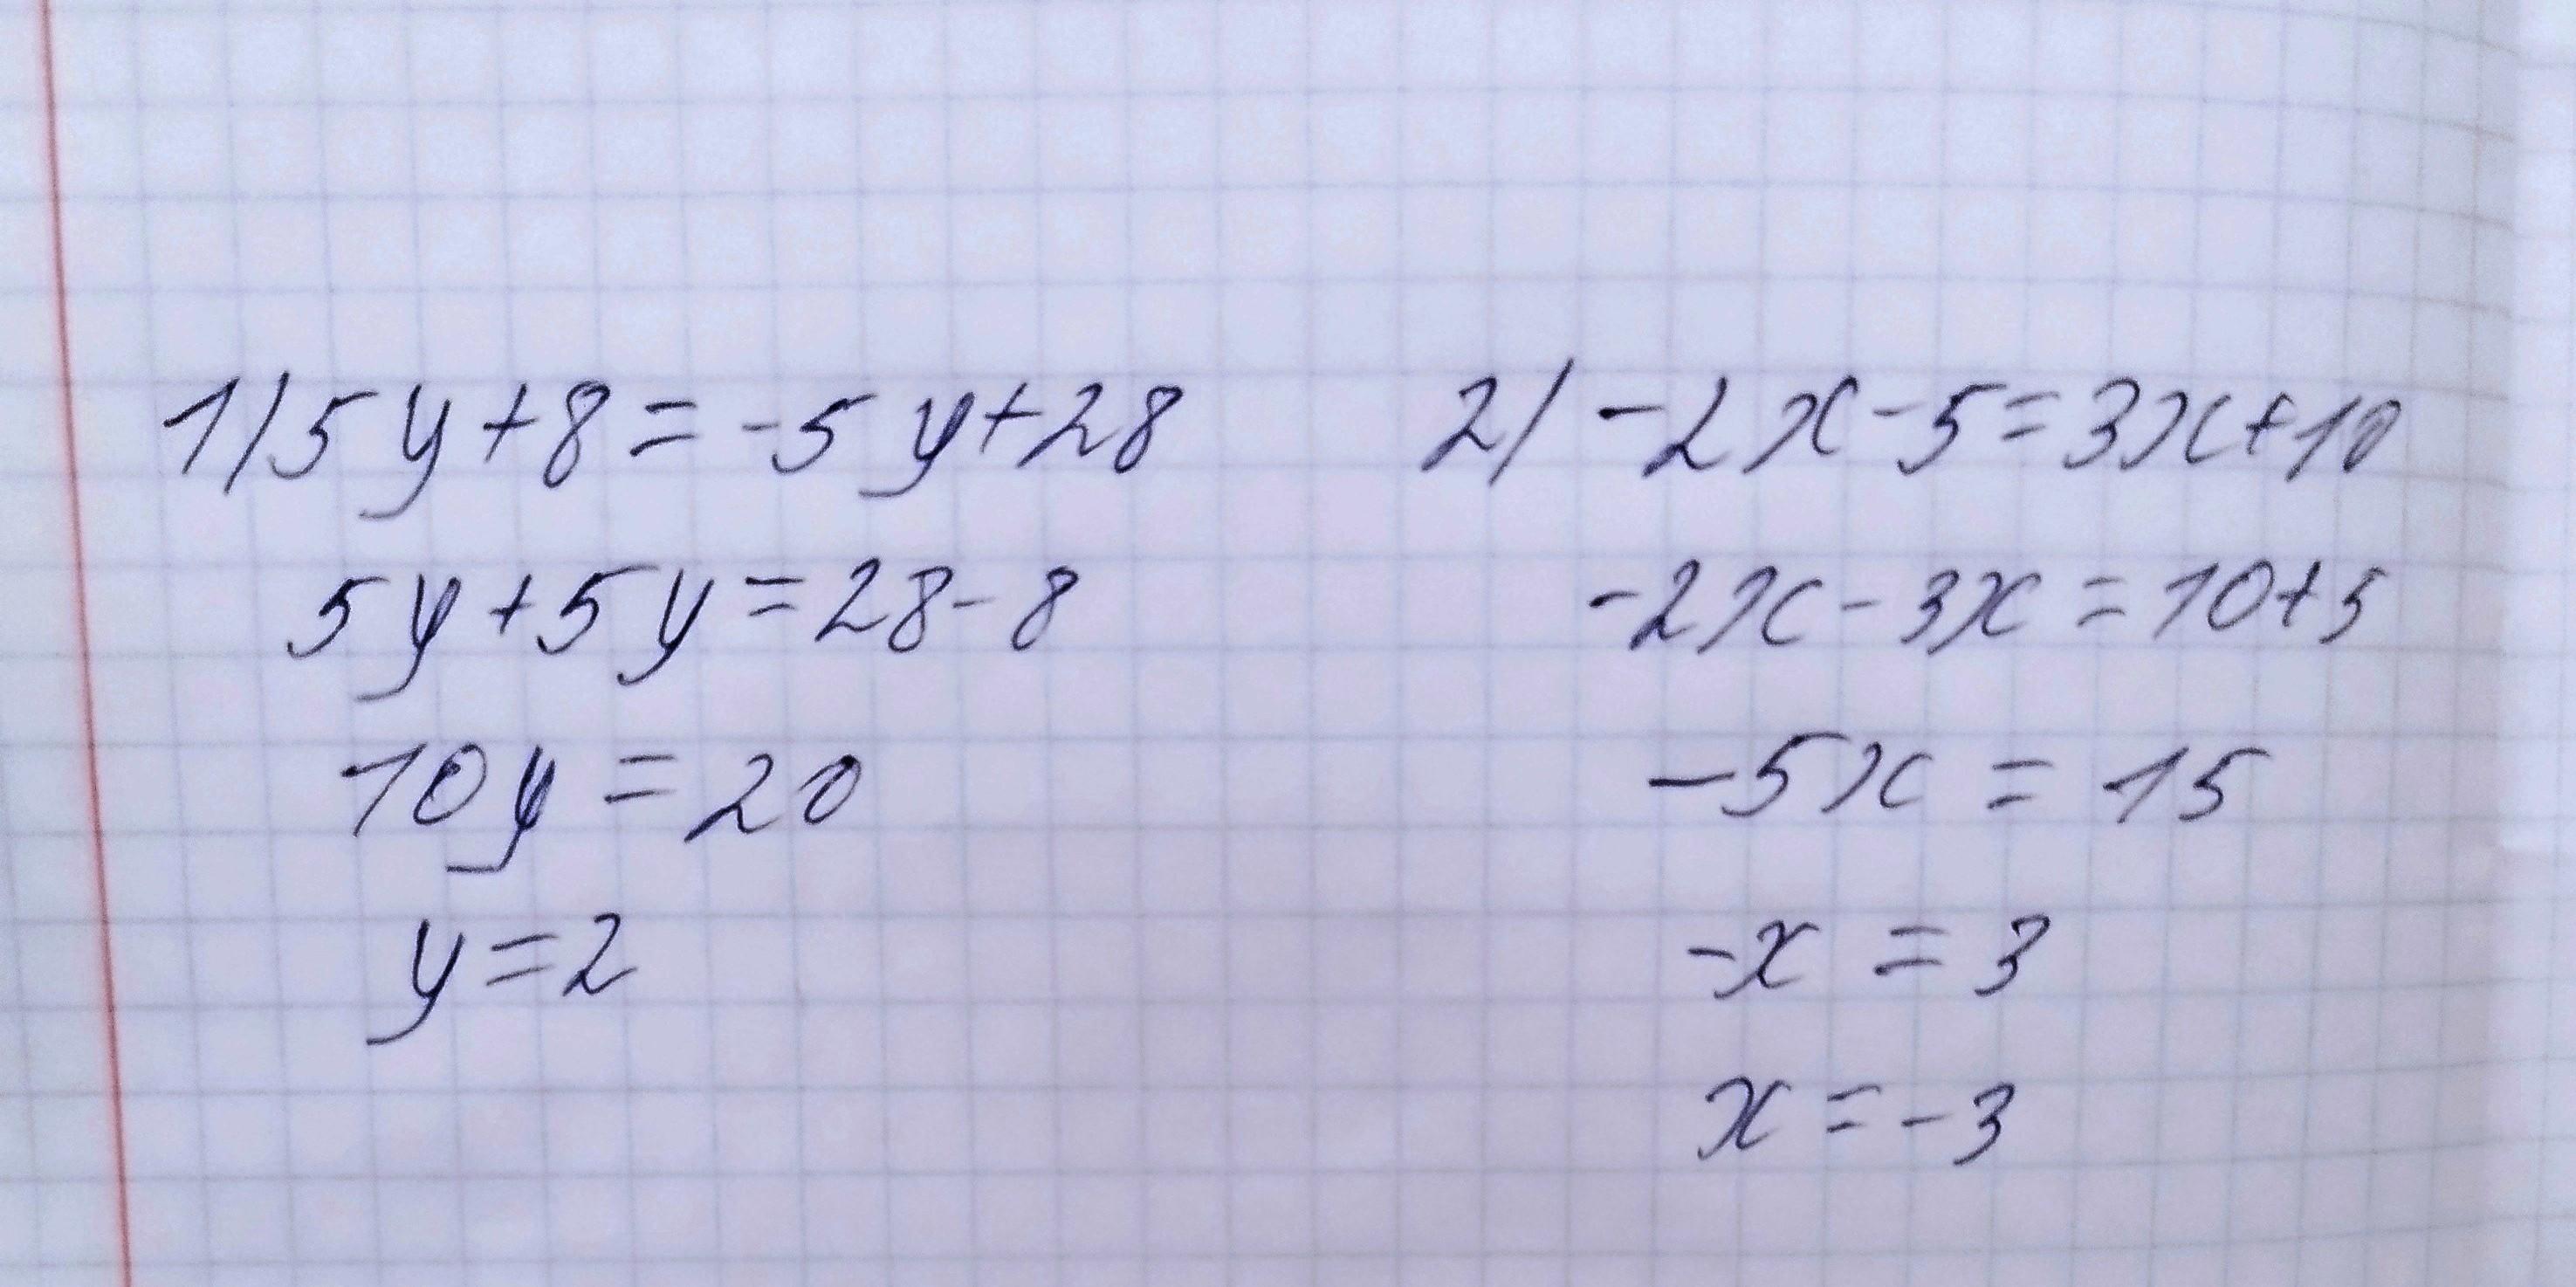 1) 5y+8=-5y+28
5y+5y=28-8
10y=20
y=2
2) -2x-5=3x+10
-2x-3x=10+5
-5x=15
-x=3
x=-3